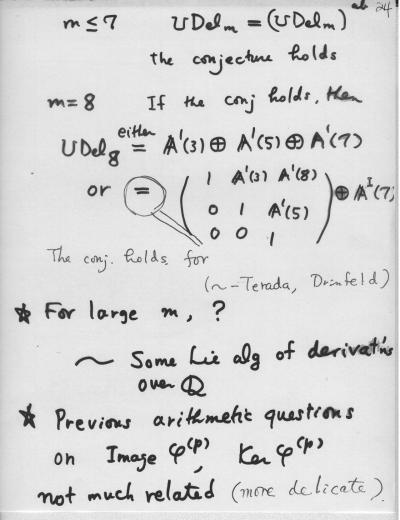 ab 24
m ≤ 7 𝒰Del_m = (𝒰Del_m)
the conjecture holds
m = 8 If the conj holds, then
𝒰Del_8 either = 𝔸'(3) ⊕ 𝔸'(5) ⊕ 𝔸'(7)
or = ( 1 𝔸'(3) 𝔸'(8)
0 1 𝔸'(5)
0 0 1 ) ⊕ 𝔸^I(7)
The conj. holds for
(~-Terada, Drinfeld)
☆ For large m, ?
~ Some Lie alg of derivat'ns
over ℚ
☆ Previous arithmetic questions
on Image φ^(p), Ker φ^(p)
not much related (more delicate).